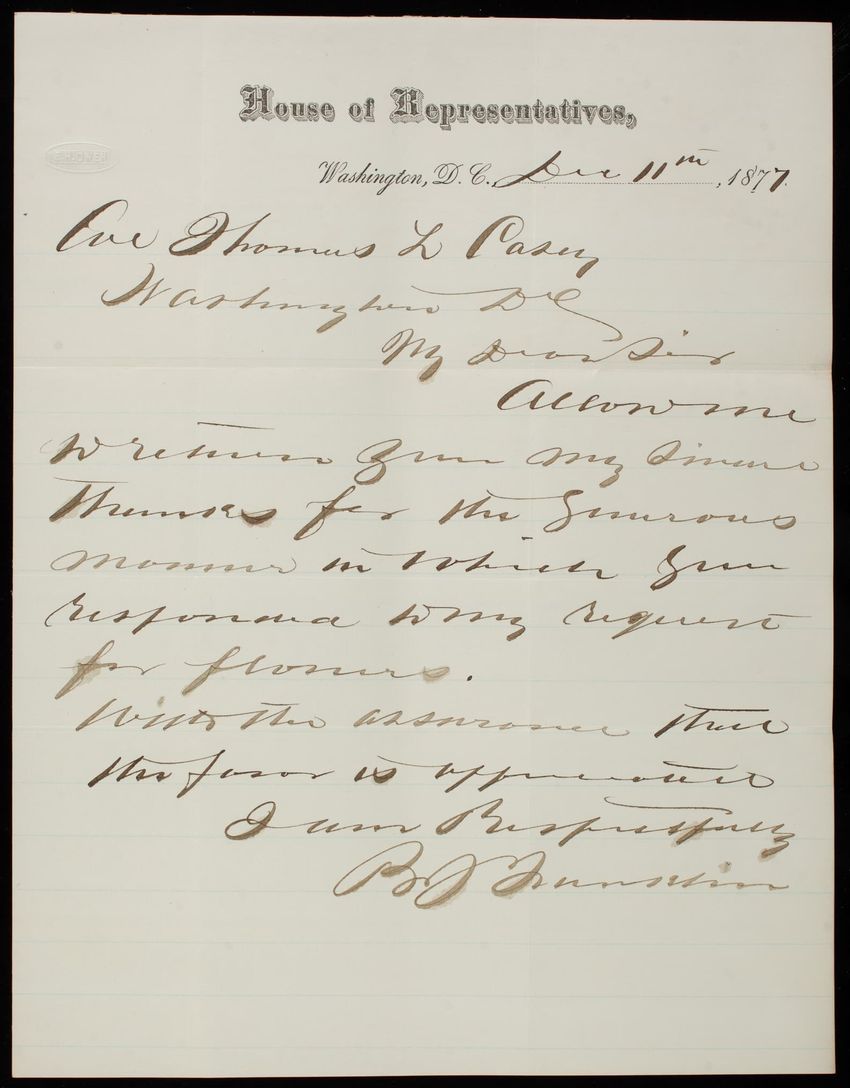 House of Representatives,
Washington, D. C., Dec 11th, 1877.
Col Thomas L Casey
Washington DC
My Dear Sir
Allow me
to return you my sincere
thanks for the generous
manner in which you
responded to my request
for flowers.
With the assurance that
the favor is appreciated
I am Respectfully
B J Franklin